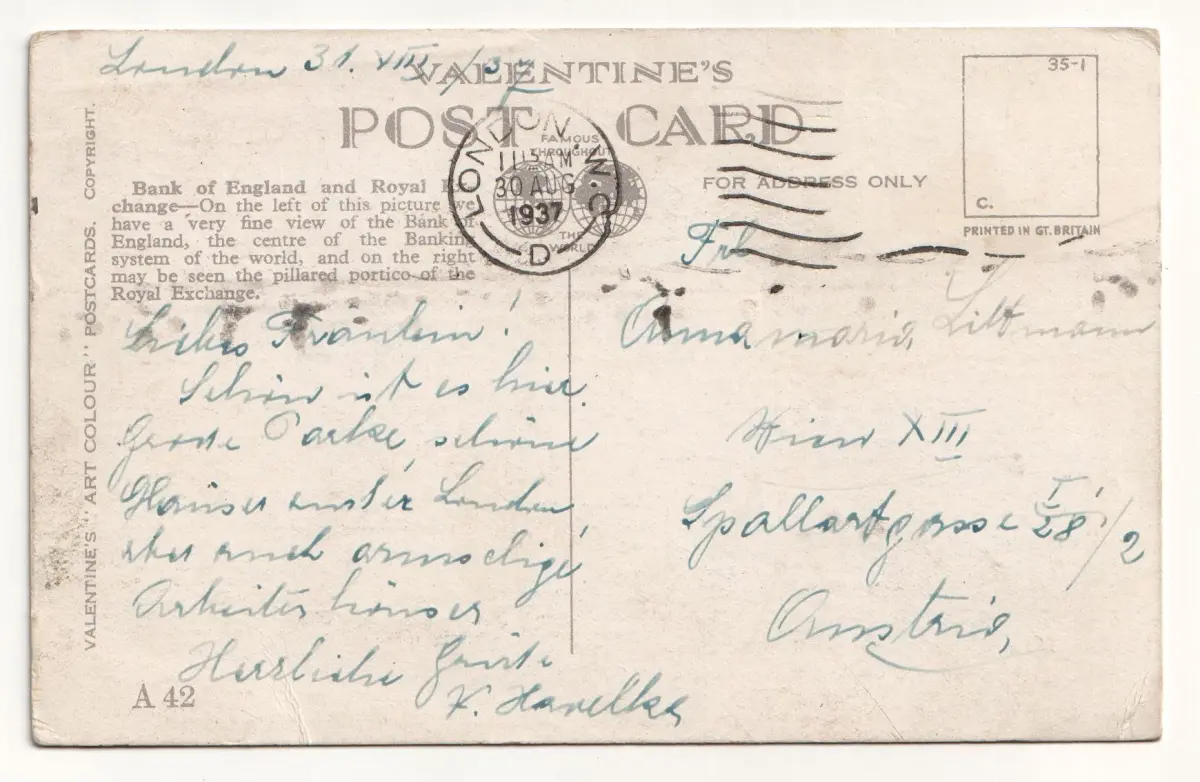 London 31. VIII /37
VALENTINE'S
POST CARD
FAMOUS
THROUGHOUT
THE
WORLD
LONDON. W.C.
1115AM
30 AUG
1937
D
35-1
C.
PRINTED IN GT. BRITAIN
FOR ADDRESS ONLY
VALENTINE'S "ART COLOUR" POSTCARDS. COPYRIGHT.
Bank of England and Royal Ex-
change—On the left of this picture we
have a very fine view of the Bank of
England, the centre of the Banking
system of the world, and on the right
may be seen the pillared portico of the
Royal Exchange.
Liebes Fräulein!
Schön ist es hier.
Große Parke, schöne
Häuser London,
aber auch armselige
Arbeiterhäuser
Herzliche Grüße
Havelka
A 42
Frl
Annamaria Littmann
Wien XIII
Spallartgasse I/28/2
Austria,